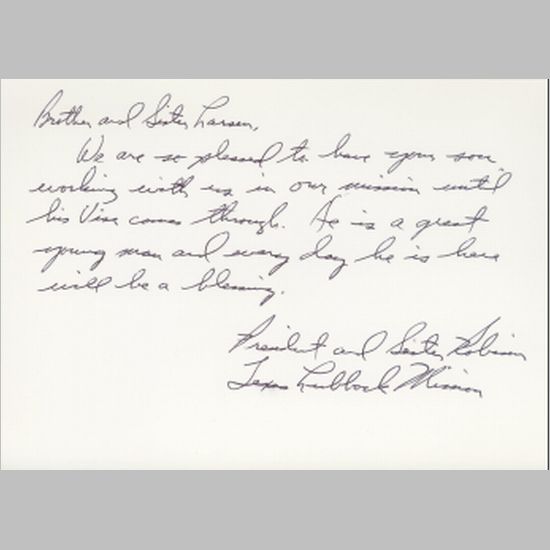 Brother and Sister Larsen,
We are so pleased to have your son
working with us in our mission until
his Visa comes through. He is a great
young man and every day he is here
will be a blessing.
President and Sister Robison
Texas Lubbock Mission